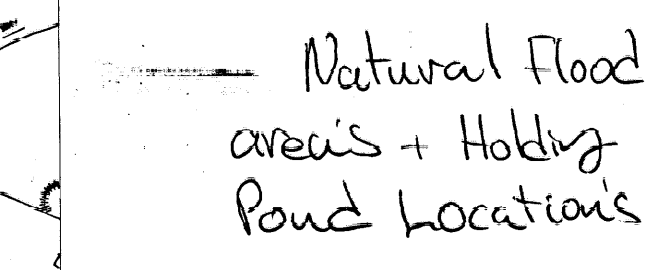 Natural Flood
area's + Holding
Pond Location's